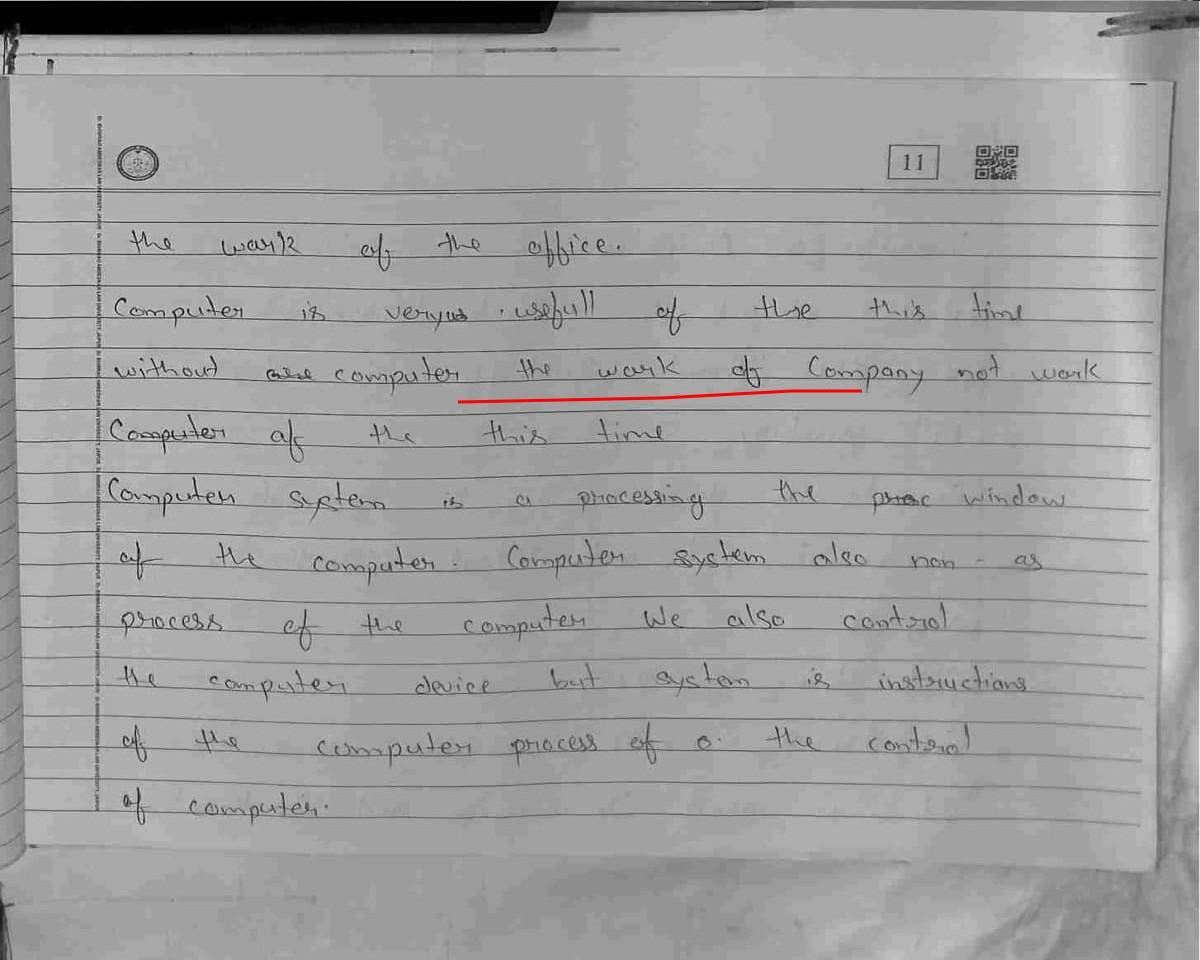 11
the work of the office.
Computer is veryus usefull of the this time
without computer the work of Company not work
Computer of the this time
Computer system is a processing the proc window
of the computer. Computer system also non - as
process of the computer We also control
the computer device but system is instructions
of the computer process of o. the control
of computer.